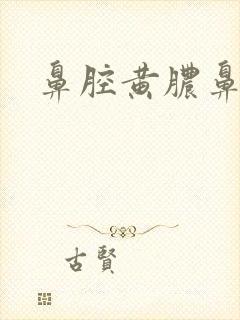 鼻腔黄膿鼻
古賢